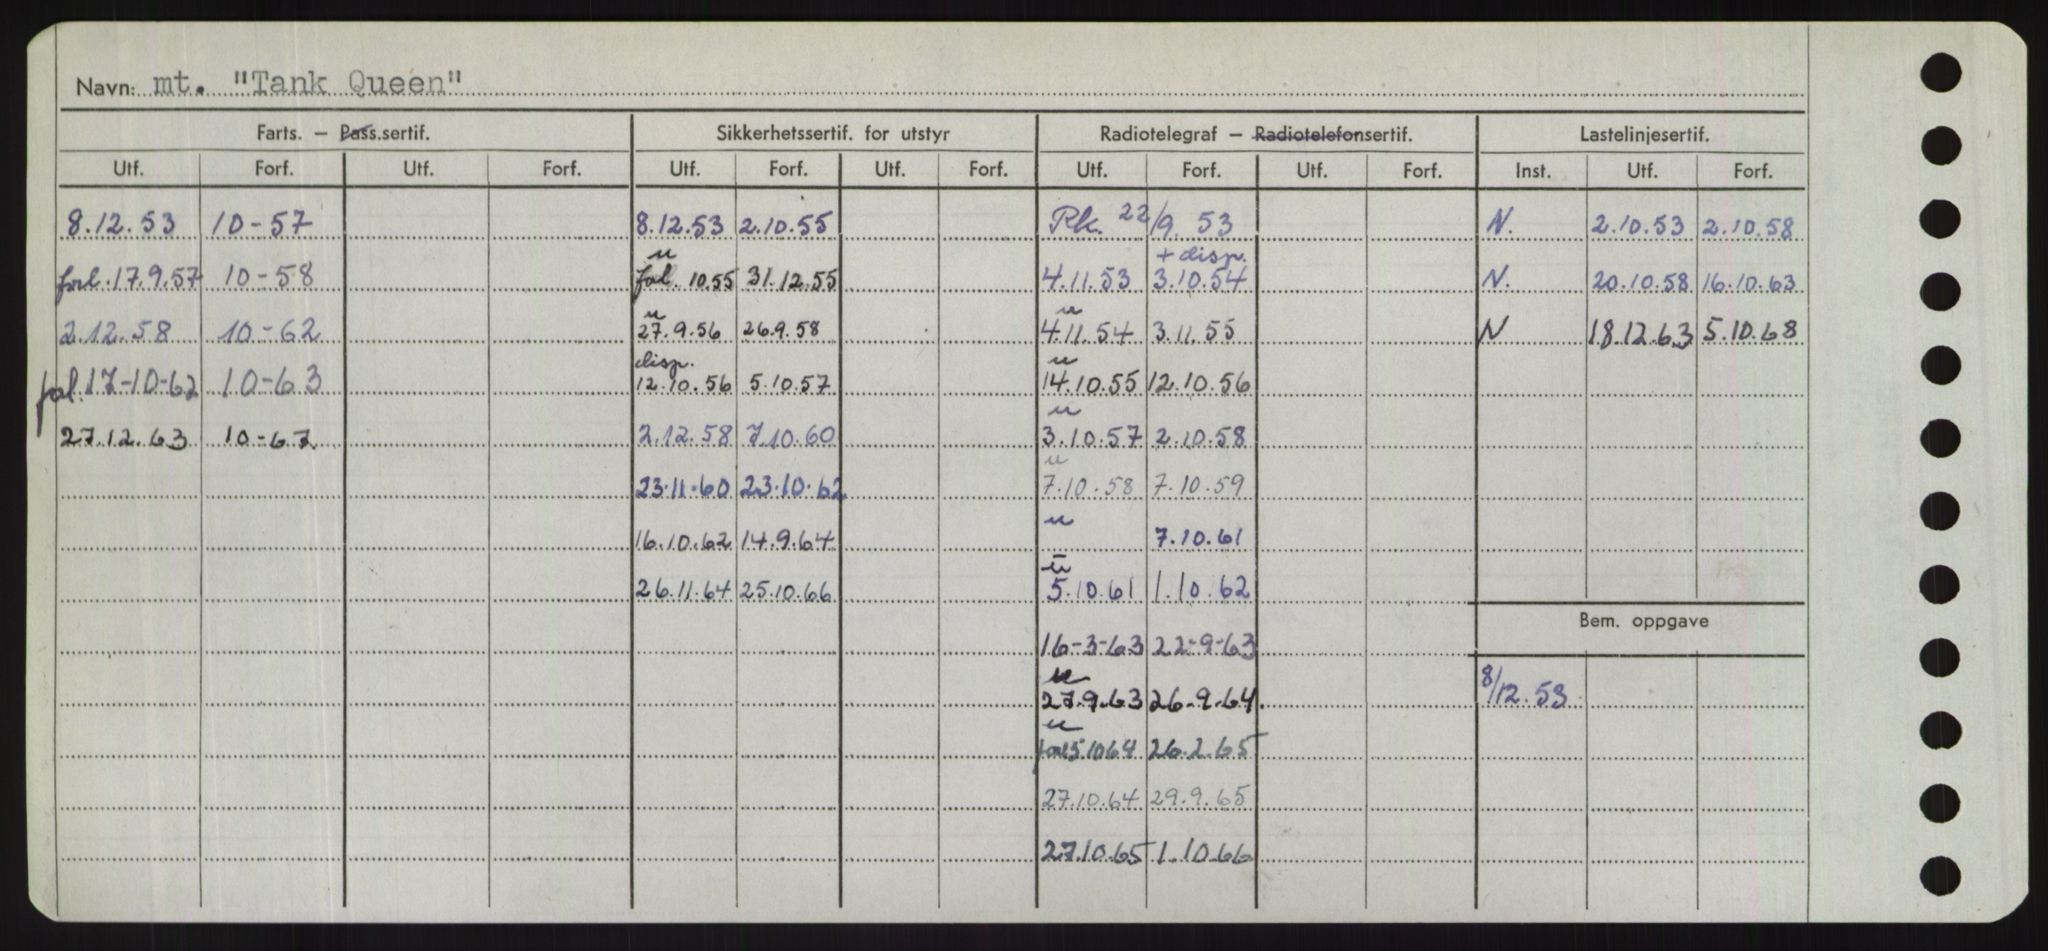 Navn: mt. "Tank Queen"
Farts. — Pass.sertif. Sikkerhetssertif. for utstyr Radiotelegraf — Radiotelefonsertif. Lastelinjesertif.
Utf. Forf. Utf. Forf. Utf. Forf. Utf. Forf. Utf. Forf. Utf. Forf. Inst. Utf. Forf.
8.12.53 10-57 8.12.53 2.10.55 Rk. 22/9. 53 N. 2.10.53 2.10.58
u + disp.
17.9.57 10-58 10.55 31.12.55 4.11.53 3.10.54 N. 20.10.58 16.10.63
u u
2.12.58 10-62 27.9.56 26.9.58 4.11.54 3.11.55 N 18.12.63 5.10.68
disp. u
17-10-62 10-63 12.10.56 5.10.57 14.10.55 12.10.56
u
27.12.63 10-67 2.12.58 7.10.60 3.10.57 2.10.58
u
23.11.60 23.10.62 7.10.58 7.10.59
u
16.10.62 14.9.64 7.10.61
u
26.11.64 25.10.66 5.10.61 1.10.62
Bem. oppgave
16-3-63 22-9-63
u
27.9.63 26.9.64. 8/12.53
u
5.10 64 26.2.65
27.10.64 29.9.65
27.10.65 1.10.66